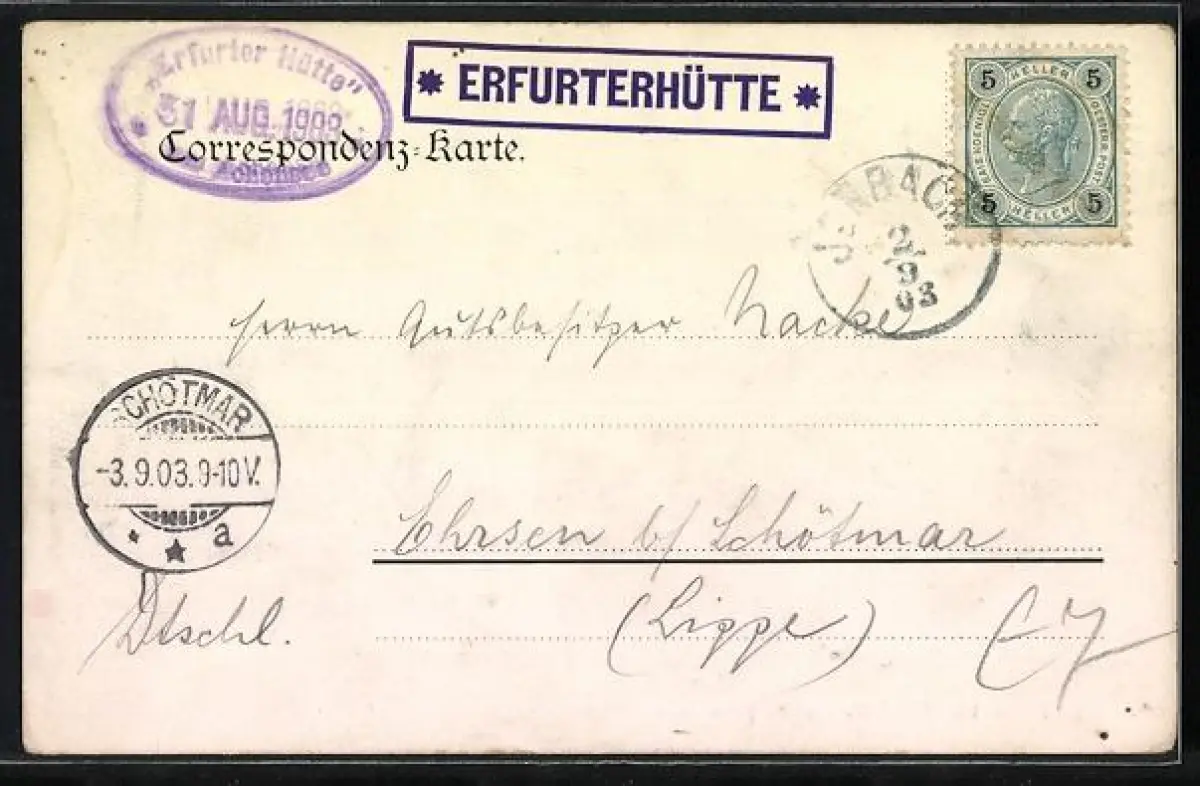 „Erfurter Hütte"
31 AUG. 1903
ERFURTERHÜTTE
Correspondenz-Karte.
5 HELLER 5
KAIS. KOENIGL. OESTERR. POST
5 HELLER 5
JENBACH
2/9
03
Herrn Gutsbesitzer Nacke
SCHÖTMAR
-3.9.03.9-10V.
a
Ehrsen b/ Schötmar
Dtschl.
(Lippe)